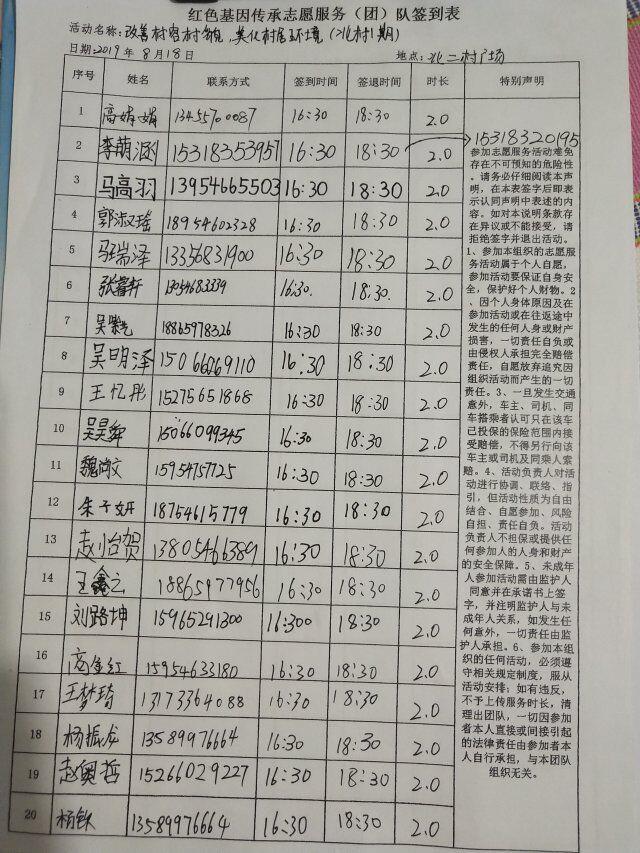 红色基因传承志愿服务（团）队签到表
活动名称: 改善村容村貌，美化村居环境（北村1期）
日期: 2019 年 8月18日 地点: 北二村广场
序号 姓名 联系方式 签到时间 签退时间 时长 特别声明
1 高娟娟 13455700087 16:30 18:30 2.0
2 李萌涵 15318353957 16:30 18:30 2.0 15318320195
3 马高羽 13954665503 16:30 18:30 2.0
4 郭淑瑶 18954602328 16:30 18:30 2.0
5 瑞泽 13356831900 16:30 18:30 2.0
6 张馨轩 13054683339 16:30. 18:30. 2.0
7 吴 18865978326 16:30 18:30 2.0
8 吴明泽 15066269110 16:30 18:30 2.0
9 王忆彤 15275651868 16:30 18:30 2.0
10 吴昊舜 15066099345 16:30 18:30 2.0
11 魏尚文 15954757725 16:30 18:30 2.0
12 朱子妍 18754615779 16:30 18:30 2.0
13 赵怡贺 13805466389 16:30 18:30 2.0
14 王鑫云 18865977956 16:30 18:30 2.0
15 刘路坤 15965291300 16:300 18:30 2.0
16 商金红 15954633180 16:30 18:30 2.0
17 王梦琦 13173364088 16:30 18:30 2.0
18 杨振龙 13589976664 16:30 18:30 2.0
19 赵奥哲 15266029227 16:30 18:30 2.0
20 杨钦 13589976664 16:30 18:30 2.0
参加志愿服务活动难免
存在不可预知的危险性
。请务必仔细阅读本声
明，在本表签字后即表
示认同声明中表述的
内容。如对本说明条款存
在异议或不能接受，请
拒绝签字并退出活动。
1、参加本组织的志愿服
务活动属于个人自愿，
参加活动要保证自身安
全，保护好个人财物。2
、因个人身体原因及在
参加活动或在往返途中
发生的任何人身或财产
损害，一切责任自负或
由侵权人承担完全赔偿
责任，自愿放弃追究因
组织活动而产生的一切
责任。3、一旦发生交通
意外，车主、司机、同
车搭乘者认可只在该车
已投保的保险范围内接
受赔偿，不得另行向该
车主或司机及同乘人索
赔。4、活动负责人对活
动进行协调、联络、指
引，但活动性质为自由
结合、自愿参加、风险
自担、责任自负。活动
负责人不担保或提供任
何参加人的人身和财产
的安全保障。5、未成年
人参加活动需由监护人
同意并在承诺书上签
字，并注明监护人与未
成年人关系，如发生任
何意外，一切责任由监
护人承担。6、参加本组
织的任何活动，必须遵
守相关规定制度，服从
活动安排；如有违反，
不予上传服务时长，清
理出团队，一切因参加
者本人直接或间接引起
的法律责任由参加者本
人自行承担，与本团队
组织无关。